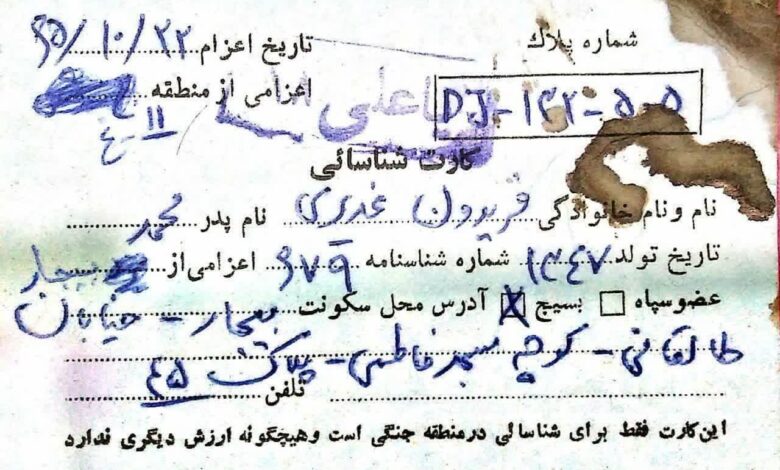 شماره پلاک تاریخ اعزام ۶۵/۱۰/۲۲
DJ-۱۳۲-۵۰۵ اعزامی از منطقه
۱۱
کارت شناسائی
نام و نام خانوادگی فریدون غدیری نام پدر محمد
تاریخ تولد ۱۳۴۷ شماره شناسنامه ۶۷۹ اعزامی از بیجار
عضو سپاه □ بسیج ☒ آدرس محل سکونت بیجار - خیابان
طالقانی - کوچه مسجد فاطمی - پلاک ۴۵
تلفن
این کارت فقط برای شناسائی در منطقه جنگی است و هیچگونه ارزش دیگری ندارد